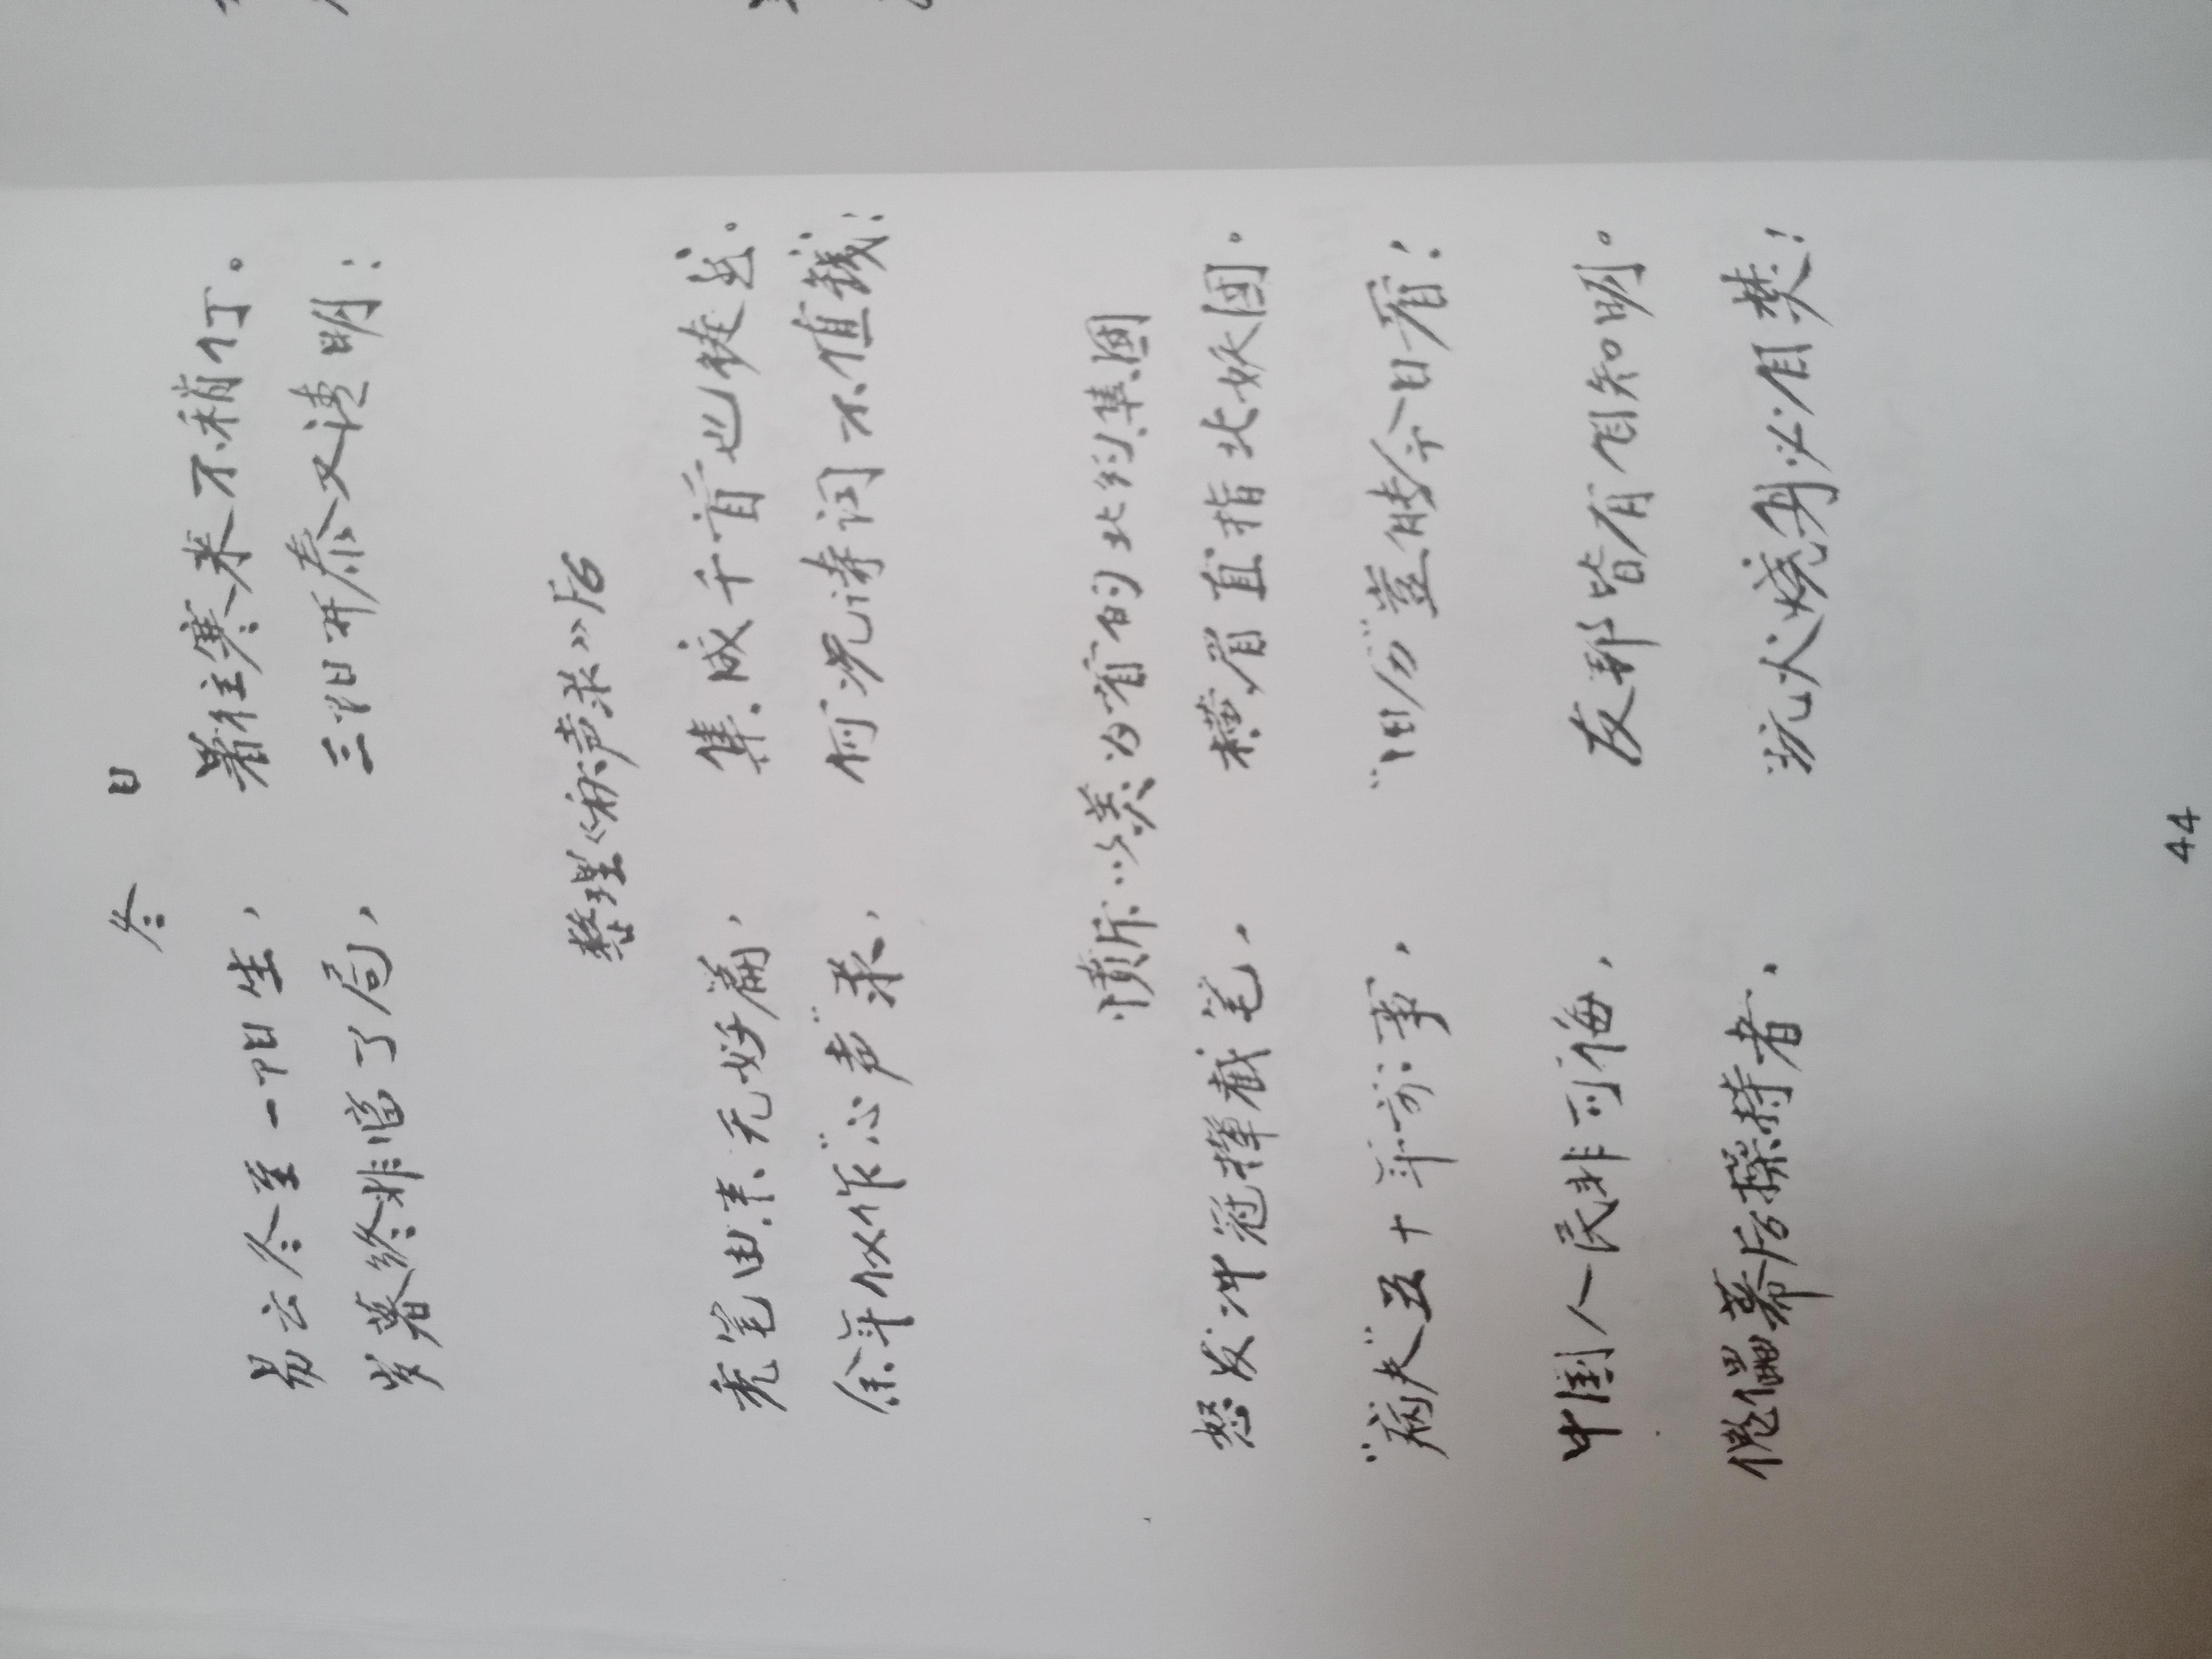 冬 日
易云冬至一阳生，暑往寒来不稍停。
岁暮终非当了局，三阳开泰又清明：
整理《心声录》后
秃笔由来无好篇，集成千首也徒然。
余年仅作“心声”录，何况诗词不值钱：
愤斥以美为首的北约集团
怒发冲冠挥截笔，横眉直指北妖团。
“病夫”五十年前事，“旧历”岂能今日看！
中国人民非可侮，友邦皆有自知明。
傀儡幕后操持者，玩火烧身必自焚！
44